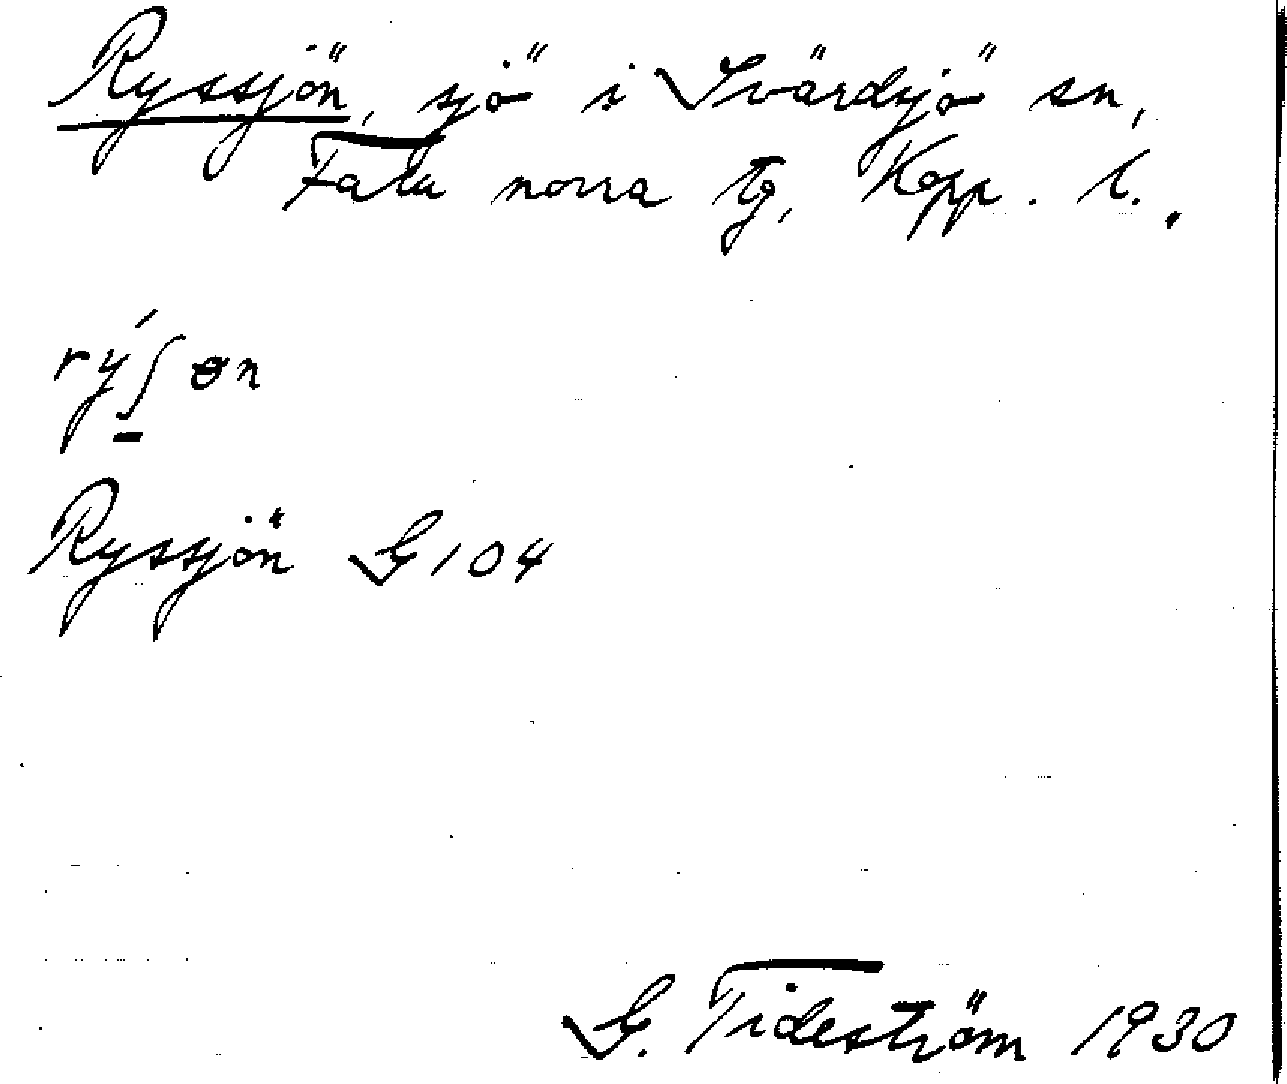 Ryssjön, sjö i Svärdsjö sn,
Falu norra tg, Kopp. l.
rý∫ɵn
Ryssjön G 104
G. Tideström 1930